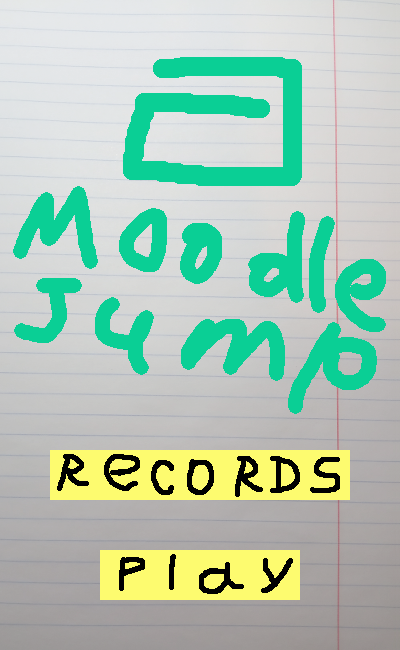 Moodle
Jump
RECORDS
Play